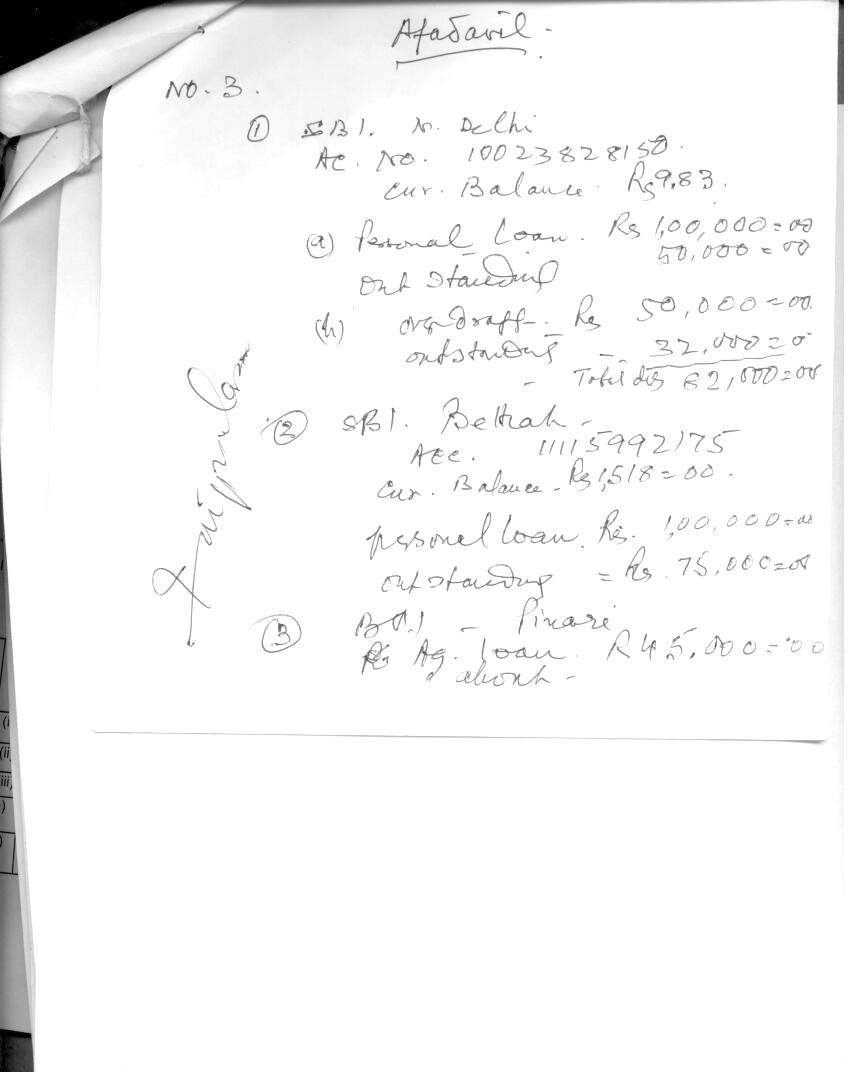 Afadavil -
No. 3.
① SBI. N. Delhi
AC. No. 10023828150.
Cur. Balance. Rs 9,83.
(a) Personal Loan. Rs 1,00,000=00
50,000=00
Out standing
(b) overdraft -. Rs 50,000=00.
outstanding - 32,000=0
- Total dis 82,000=00
② SBI. Bettiah -
Acc. 11115992175
Cur. Balance - Rs 1,518=00.
personal loan. Rs. 1,00,000=00
out standing = Rs. 75,000=00
③ - Pirari
Ag. loan. R 45,000=00
about -
(i
(ii
iii)
)